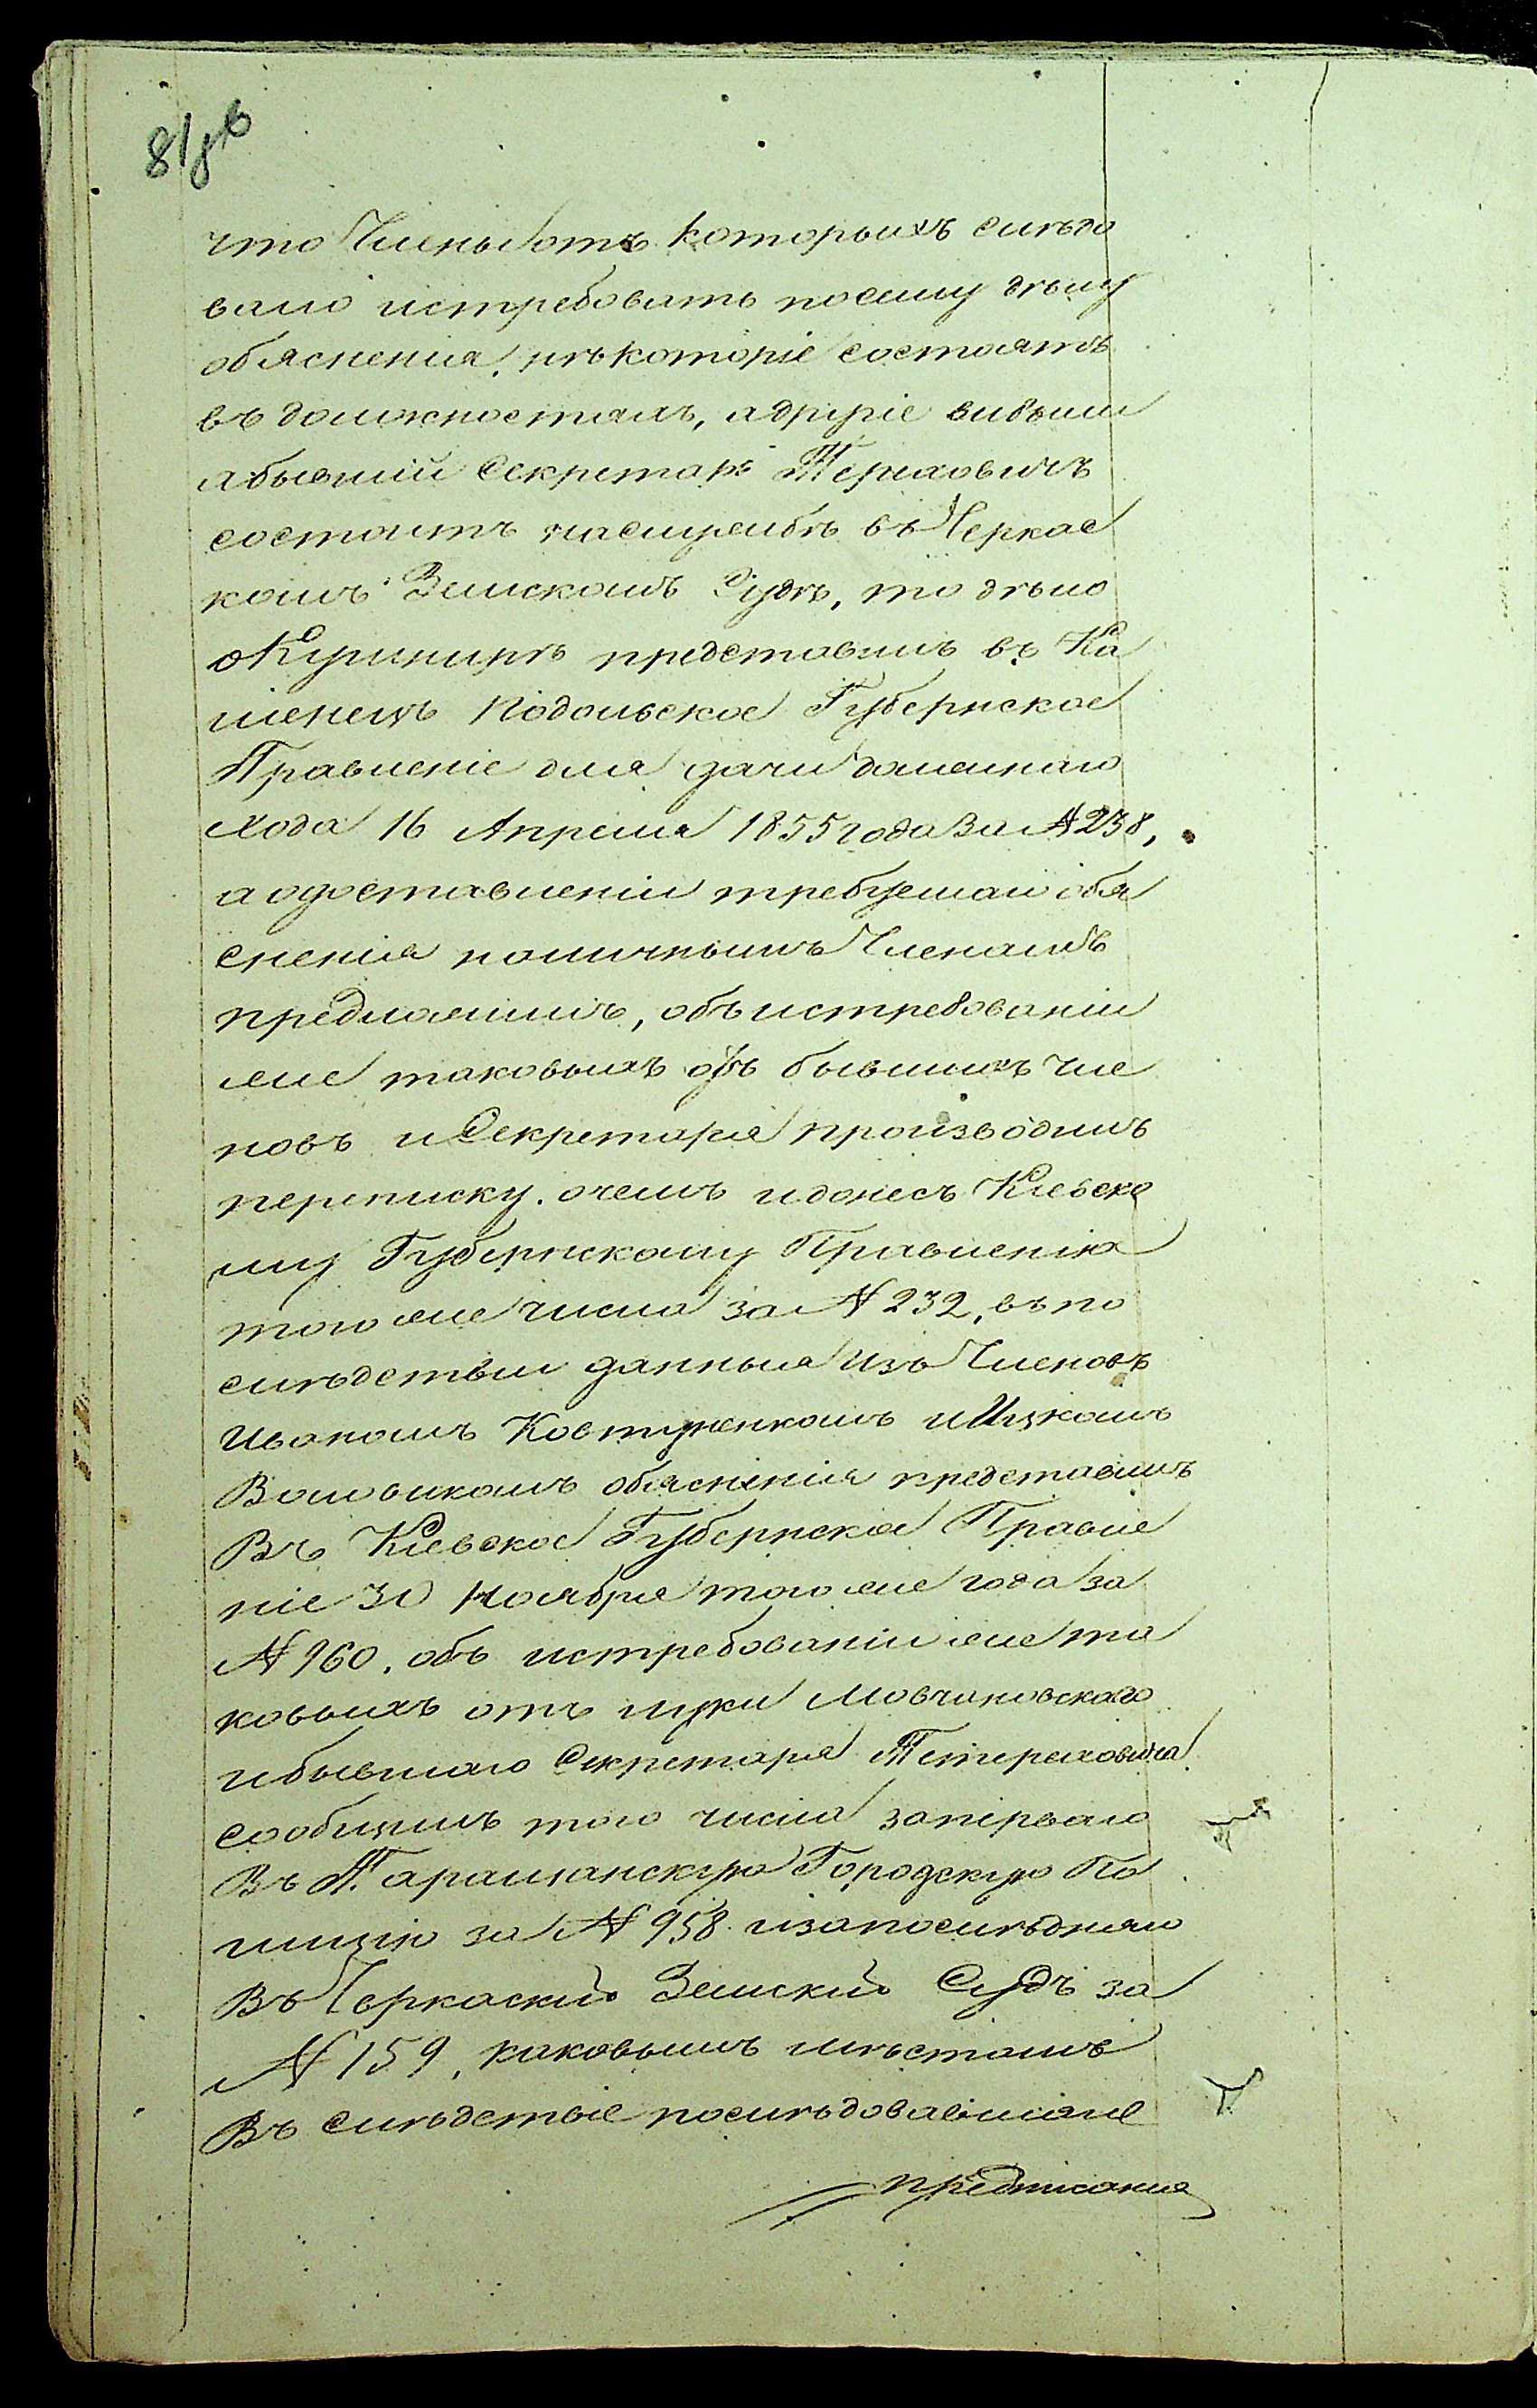 81 об
что Члены отъ которыхъ слѣдо
вало истребовать посему дѣлу
обясненія, нѣкоторіе состоятъ
въ должностяхъ, а другіе выбыли
а бывшій Секретарь Терлаховичъ
состоитъ на службѣ въ Черкас
комъ Земскомъ Судѣ, то дѣло
о представилъ въ Ка
менецъ Подольское Губернское
Правленіе для дачи далшаго
хода 16 Апреля 1855 года за № 238,
а о доставленіи требуемаго обя
сненія наличнымъ Членамъ
предложилъ, объ истребованіи
же таковыхъ отъ бывшихъ Чле
новъ и Секретаря производилъ
переписку. о чемъ и донесъ Кіевско
му Губернскому Правленію
того же числа за № 232, въ по
слѣдствіи данныя изъ Членовъ
Иваномъ Ковтуненкомъ и Ицкомъ
обясненія представилъ
Въ Кіевское Губернское Правле
ніе 30 Ноября того же года за
№ 960. объ истребованіи же та
ковыхъ отъ Луки Мовчановскаго
и бывшаго Секретаря
сообщилъ того числа за перваго
Въ Таращанскую Городскую По
лицію за № 958 и за послѣдняго
Въ Черкаскій Земскій Судъ за
№ 159, каковымъ мѣстамъ
Въ слѣдствіе послѣдовавшаго
предписанія